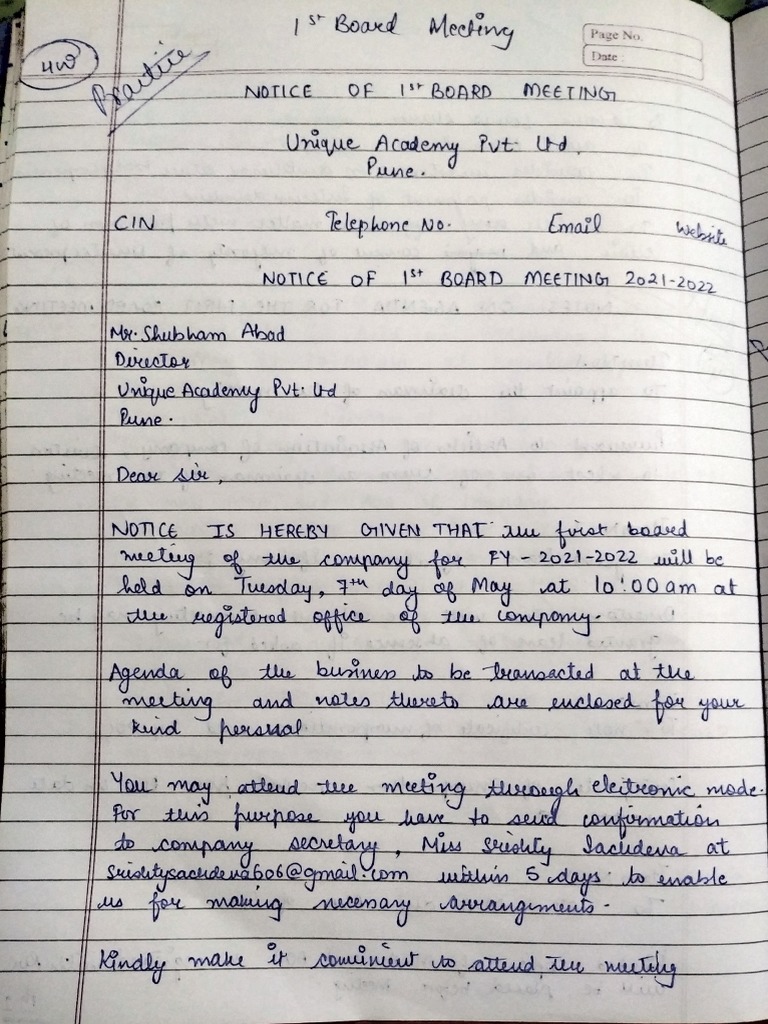 1st Board Meeting
Page No.
Date :
HW
Practice
NOTICE OF 1st BOARD MEETING
Unique Academy Pvt. Ltd.
Pune.
CIN Telephone No. Email Website
NOTICE OF 1st BOARD MEETING 2021-2022
Mr. Shubham Abad
Director
Unique Academy Pvt. Ltd
Pune.
Dear sir,
NOTICE IS HEREBY GIVEN THAT the first board
meeting of the company for FY - 2021-2022 will be
held on Tuesday, 7th day of May at 10:00 am at
the registered office of the company.
Agenda of the business to be transacted at the
meeting and notes thereto are enclosed for your
kind perusal
You may attend the meeting through electronic mode.
For this purpose you have to send confirmation
to company secretary, Miss Srishty Sachdeva at
Srishtysachdeva606@gmail.com within 5 days to enable
us for making necessary arrangements.
Kindly make it convinient to attend the meeting